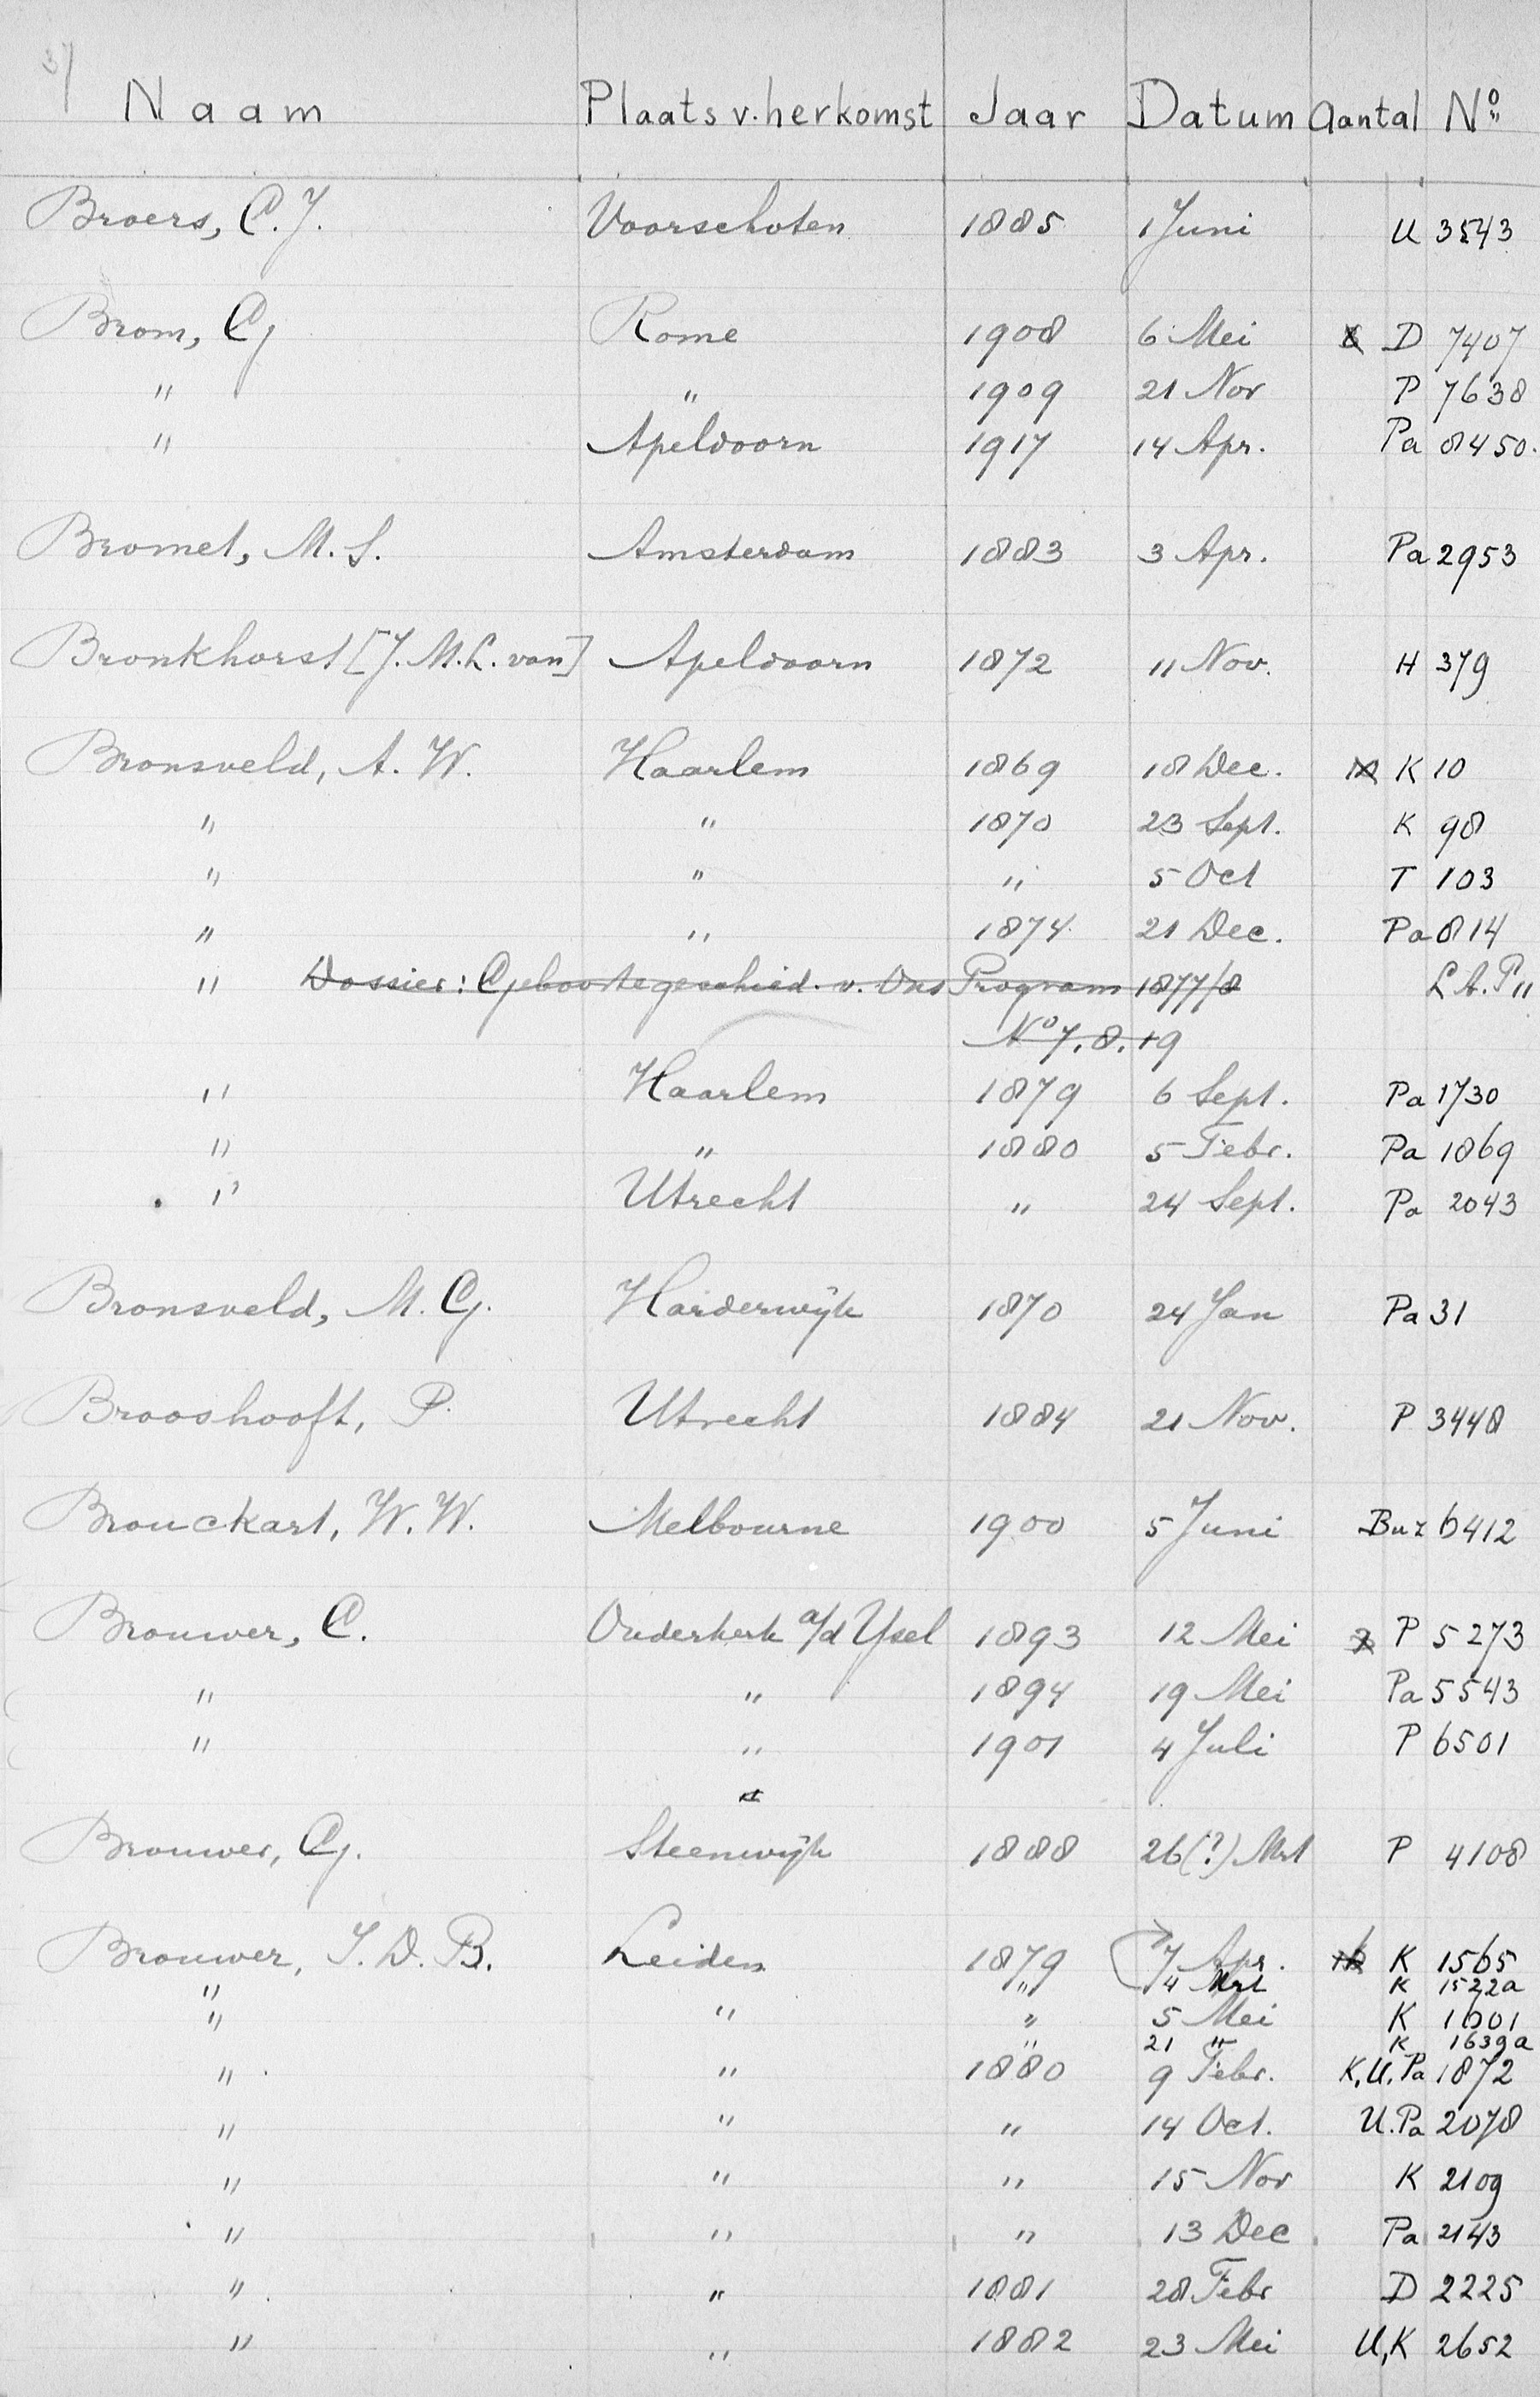 37
Naam Plaats v. herkomst Jaar Datum Aantal No.
Broers, C.J. Voorschoten 1885 1 Juni U 3543
Brom, G Rome 1908 6 Mei D 7407
" " 1909 21 Nov P 7638
" Apeldoorn 1917 14 Apr. Pa 8450.
Bromet, M.S. Amsterdam 1883 3 Apr. Pa 2953
Bronkhorst [J.M.L. van] Apeldoorn 1872 11 Nov. H 379
Bronsveld, A.W. Haarlem 1869 18 Dec. K 10
" " 1870 23 Sept. K 98
" " " 5 Oct T 103
" " 1874 21 Dec. Pa 814
" Dossier: Geboortegeschied. v. Ons Program 1877/8 L.A.P"
No 7.8.19
" Haarlem 1879 6 Sept. Pa 1730
" " 1880 5 Febr. Pa 1869
" Utrecht " 24 Sept. Pa 2043
Bronsveld, M.G. Harderwijk 1870 24 Jan Pa 31
Brooshooft, P. Utrecht 1884 21 Nov. P 3448
Brouckart, W.W. Melbourne 1900 5 Juni Buz 6412
Brouwer, C. Ouderkerk a/d Ysel 1893 12 Mei P 5273
" " 1894 19 Mei Pa 5543
" " 1901 4 Juli P 6501
Brouwer, G. Steenwijk 1888 26(?) Mrt P 4108
Brouwer, J.D.B. Leiden 1879 7 Apr. K 1565
" " 4 Mrt K 1522a
" " " 5 Mei K 1601
" 21 " K 1639a
" " 1880 9 Febr. K,U.Pa 1872
" " " 14 Oct. U.Pa 2078
" " " 15 Nov K 2109
" " " 13 Dec Pa 2143
" " 1881 28 Febr D 2225
" " 1882 23 Mei U,K 2652